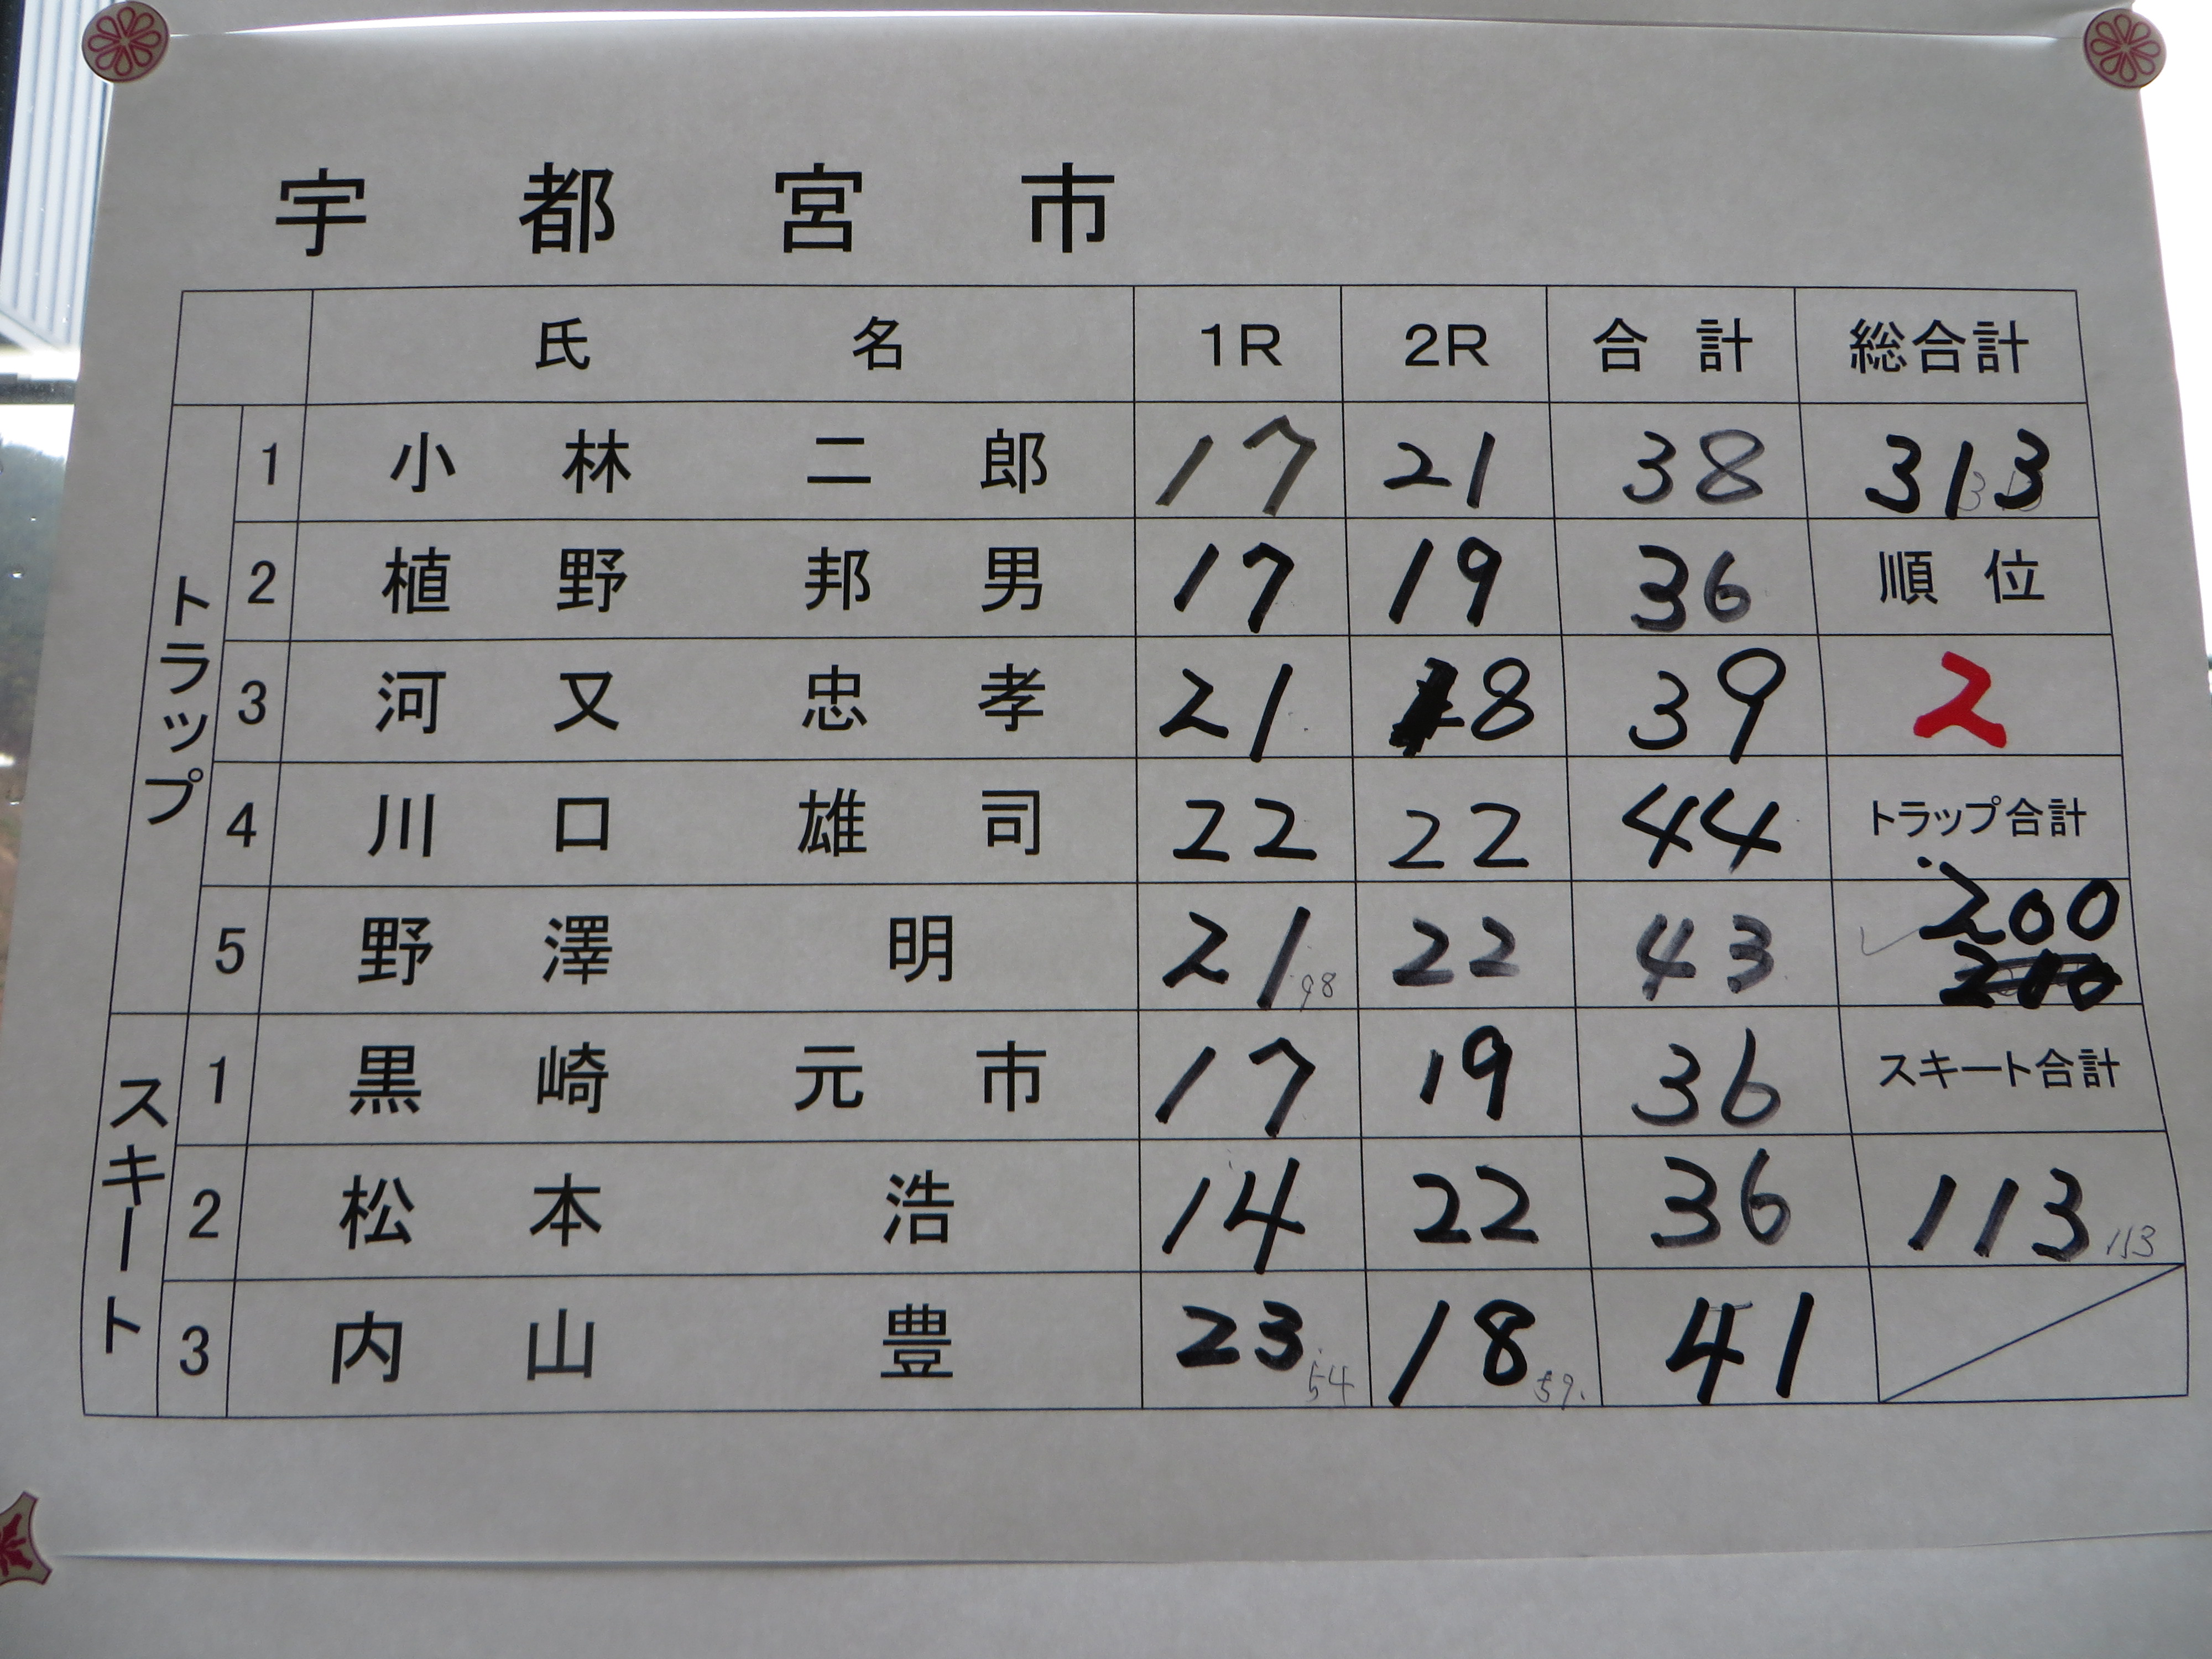 宇都宮市
氏名 1R 2R 合計 総合計
トラップ
1 小林二郎 17 21 38 313
2 植野邦男 17 19 36 順位
3 河又忠孝 21 18 39 2
4 川口雄司 22 22 44 トラップ合計
5 野澤明 21 98 22 43 200
スキート
1 黒崎元市 17 19 36 スキート合計
2 松本浩 14 22 36 113 113
3 内山豊 23 54 18 59. 41